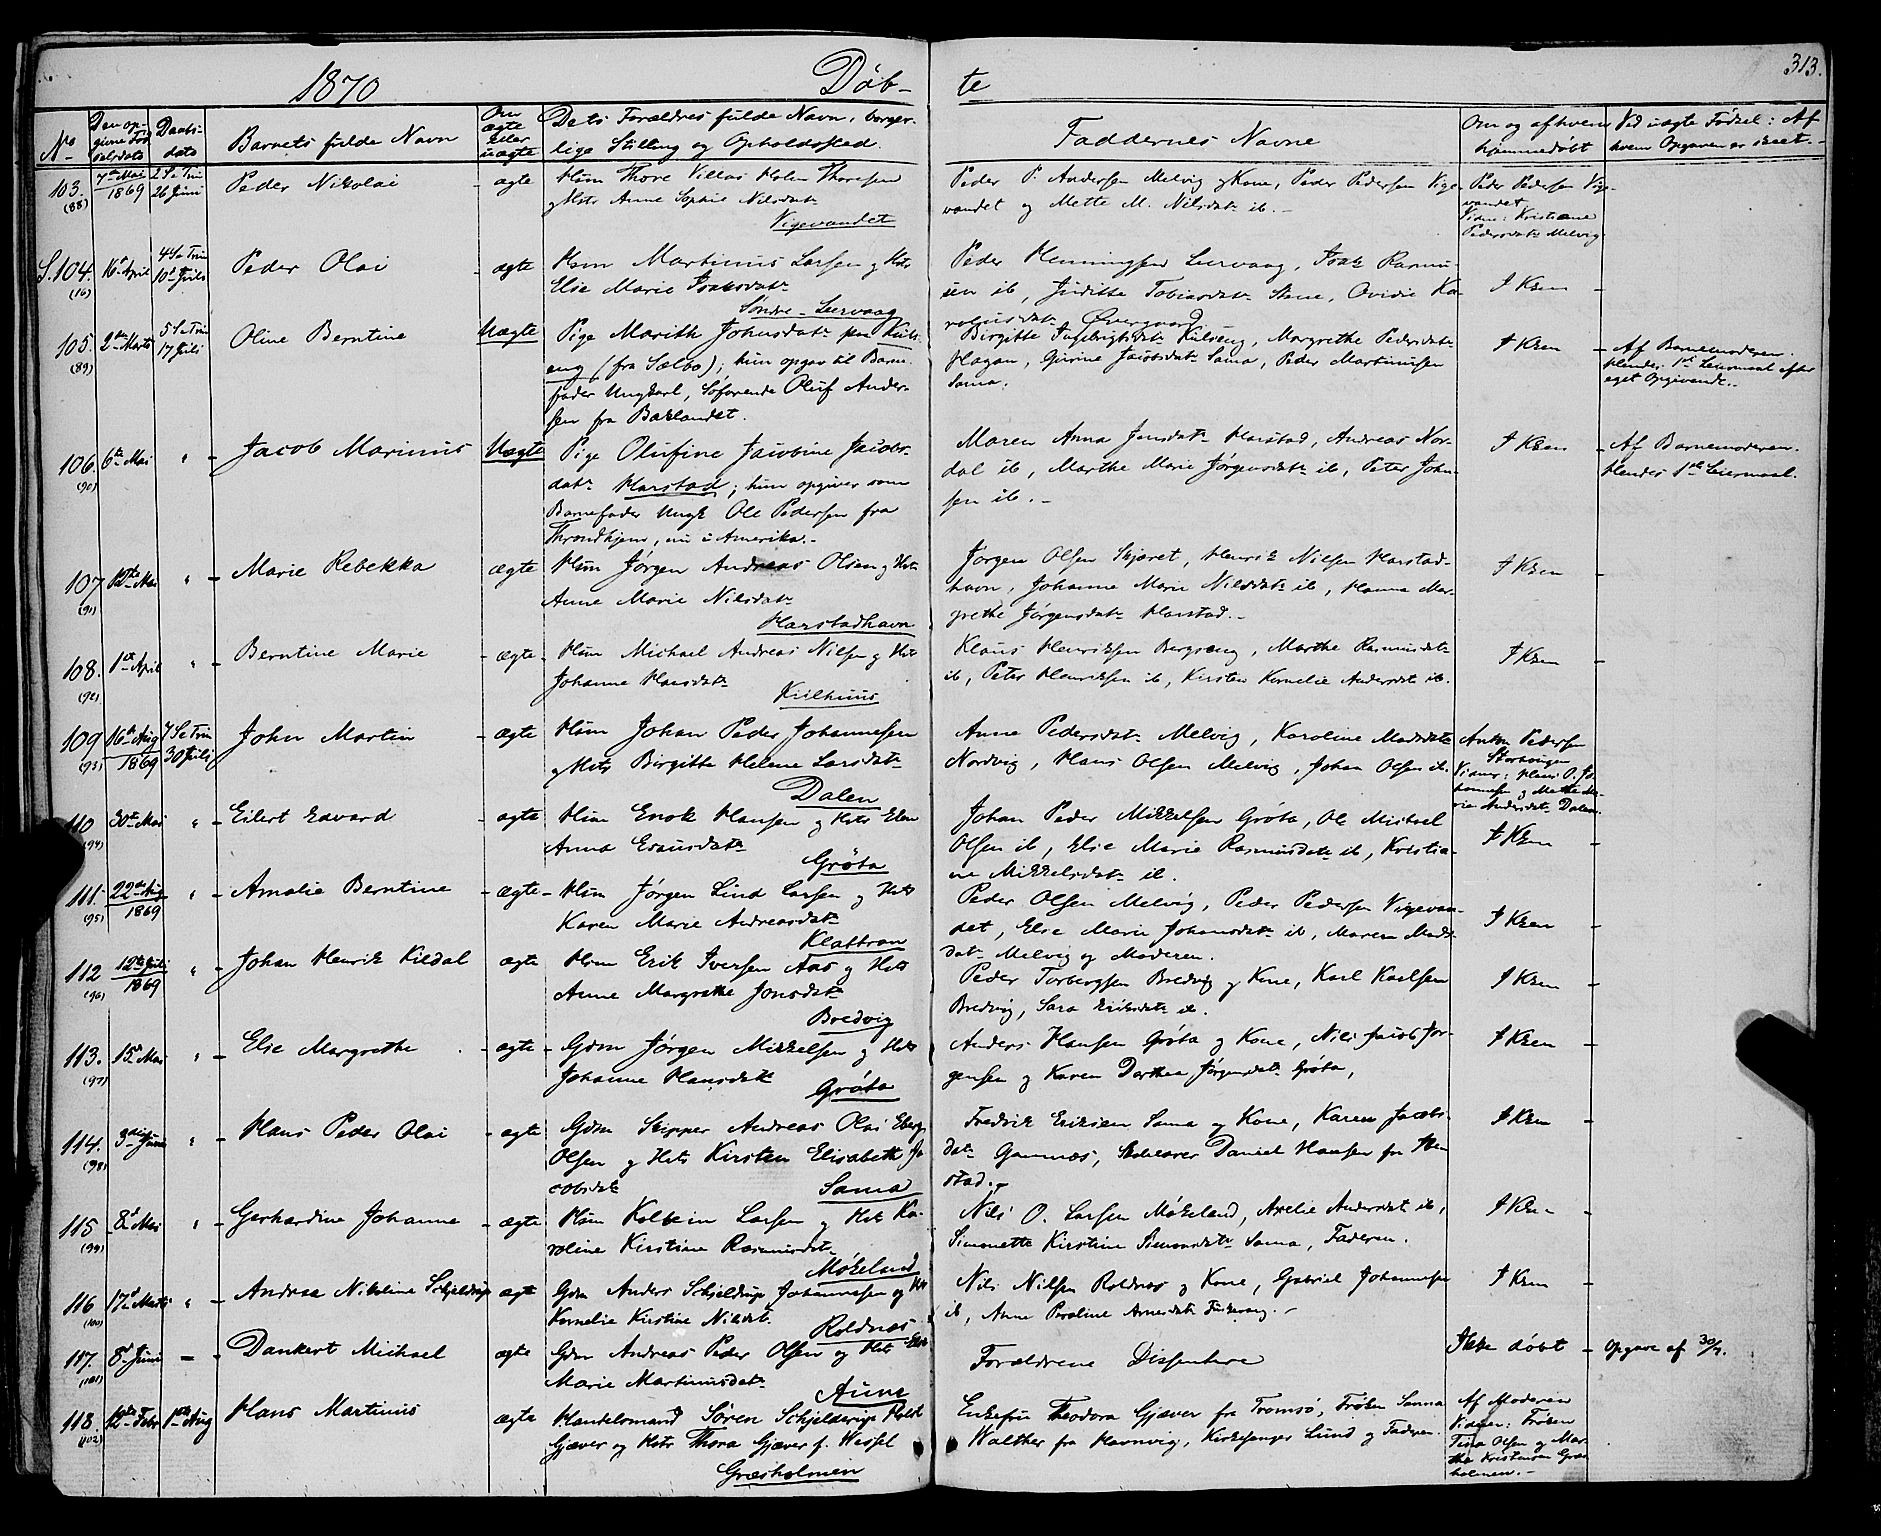 1870
Døb-
te
313.
No
Den op-
givne Fød
selsdato
Daabs-
dato
Barnets fulde Navn
Om
ægte
eller
uægte
Dets Forældres fulde Navn, borger-
lige Stilling og Opholdssted.
Faddernes Navne
Om og af hvem
hjemmedøbt
Ved uægte Fødsel: Af
hvem Opgaven er skeet.
103.
(88)
7de Mai
1869
2 S e Trin
26 Juni
Peder Nikolai
ægte
Hsm Thore Villas Holm Thoresen
og Hstr Anne Sophie Nilsdatr
Vigevandet
Peder P. Andersen Melvig og Kone, Peder Pedersen Vige-
vandet og Mette M. Nilsdatr ib.
Peder Pedersen Vige-
vandet
Vidne: Kristiane
Pedersdatr Melvig
S. 104.
(16)
16d April
4 S e Trin
10d Juli
Peder Olai
ægte
Hsm Martinus Larsen og Hstr
Else Marie Isaksdatr
Søndre-Leervaag
Peder Henningsen Leervaag, Isak Rasmu-
sen ib, Juditte Tobiasdatr Stene, Ovidie Ka-
rolusdatr Øvergaard
I Krken
105.
(89)
2den Marts
5 S e Trin
17 Juli
Oline Berntine
Uægte
Pige Marith Johnsdatr paa Kuls-
eng (fra Sælbo); hun opgav til Barne-
fader Ungkarl, Søfarende Oluf Ander-
sen fra Baklandet.
Birgitte Ingebrigtsdatr Kulseng, Margrethe Pedersdatr
Hagan, Gurine Jacobsdatr Sama, Peder Martinussen
Sama.
I Krken
Af Barnemoderen.
Hendes 1ste Leiermaal efter
eget Opgivende.
106.
(90)
6te Mai
"
Jacob Marinius
Uægte
Pige Olufine Jacobine Jacobs-
datr Harstad; hun opgiver som
Barnefader Ungk Ole Pedersen fra
Throndhjem, nu i Amerika.
Maren Anna Jensdatr Harstad, Andreas Nor-
dal ib, Marthe Marie Jørgensdatr ib, Peter John-
sen ib.
I Krken
Af Barnemoderen.
Hendes 1ste Leiermaal.
107
(91)
12te Mai
"
Marie Rebekka
ægte
Hsm Jørgen Andreas Olsen og Hstr
Anne Marie Nilsdatr
Harstadhavn
Jørgen Olsen Skjæret, Henrik Nilsen Harstad-
havn, Johanne Marie Nilsdatr ib, Hanna Mar-
grethe Jørgensdatr Harstad.
I Krken
108.
(92)
1st April
"
Berntine Marie
ægte
Hsm Michael Andreas Nilsen og Hstr
Johanne Hansdatr
Kiilhuus
Klaus Henriksen Bergseng, Marthe Rasmusdatr
ib, Peter Henriksen ib, Kirsten Kornelie Andersdt ib.
I Krken
109
(93)
16d Aug
1869
7 S e Trin
30 Juli
John Martin
ægte
Hsm Johan Peder Johannesen
og Hstr Birgitte Helene Larsdatr
Dalen
Anne Pedersdatr Melvig, Karoline Madsdatr
Nordvig, Hans Olsen Melvig, Johan Olsen ib.
Anton Pedersen
Storhaugen
Vidner: Hans O. Jo-
hannesen og Mette Ma-
rie Andersdatr Dalen
110
(94)
30te Mai
"
Eilert Edvard
ægte
Hsm Enok Hansen og Hstr Elen
Anna Esausdatr
Grøta
Johan Peder Mikkelsen Grøta, Ole Mikael
Olsen ib, Else Marie Rasmusdatr ib, Kristia-
ne Mikkelsdatr ib.
I Krken
111.
(95)
22de Aug
1869
"
Amalie Berntine
ægte
Hsm Jørgen Lind Larsen og Hstr
Karen Marie Andreasdatr
Klattran
Peder Olsen Melvig, Peder Pedersen Vigevan-
det, Else Marie Johansdatr ib, Maren Mads-
datr Melvig og Moderen.
I Krken
112
(96)
12te Juli
1869
"
Johan Henrik Kildal
ægte
Hsm Erik Iversen Aas og Hstr
Anne Margrethe Jonsdatr
Bredvig
Peder Torbergsen Bredvig og Kone, Karl Karlsen
Bredvig, Sara Eriksdatr ib.
I Krken
113.
(97)
15d Mai
"
Else Margrethe
ægte
Gdm Jørgen Mikkelsen og Hstr
Johanne Hansdatr
Grøta
Anders Hansen Grøta og Kone, Nils Jacob Jør-
gensen og Karen Dorthea Jørgensdatr Grøta,
I Krken
114.
(98)
3die Juni
"
Hans Peder Olai
ægte
Gdm Skipper Andreas Olai Eberg
Olsen og Hstr Kirsten Elisabeth Ja-
cobsdatr
Sama
Fredrik Eriksen Sama og Kone, Karen Jacobs-
datr Gamnæs, Skolelærer Daniel Hansen fra Hen-
stad.
I Krken
115
(99)
8d Mai
"
Gerhardine Johanne
ægte
Hsm Kolbein Larsen og Hstr Ka-
roline Kirstine Rasmusdatr
Møkeland
Nils O. Larsen Møkeland, Amelie Andersdt ib,
Simonette Kirstine Simonsdatr Sama, Faderen.
I Krken
116
(100)
17d Marts
"
Andrea Nikoline Schjeldrup
ægte
Gdm Anders Schjeldrup Johannesen og Hstr
Kornelie Kirstine Nilsdt.
Roldnæs
Nils Nilsen Roldnæs og Kone, Gabriel Johannesen
ib, Anne Peroline Arnesdatr
I Krken
117.
(101)
8d Juni
Dankert Michael
ægte
Gdm Andreas Peder Olsen og Hst Else
Marie Martinusdatr
Aune
Forældrene Dissentere
Ikke døbt
Opgave af 30/7.
118.
(102)
12te Febr
1ste Aug
Hans Martinus
ægte
Handelsmand Søren Schjelderup Holst
Gjæver og Hstr Thora Gjæver f. Wessel
Græsholmen
Enkefru Theodora Gjæver fra Tromsø, Frøken Sanna
Walther fra Havnvig, Kirkesanger Lund og Faderen.
Af Moderen
Vidner: Frøken
Tina Olsen og Mar-
the Kristensen Græs-
holmen.